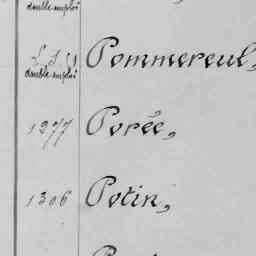 double emploi
Pommereul,
double emploi
1277 Porée,
1306 Potin,